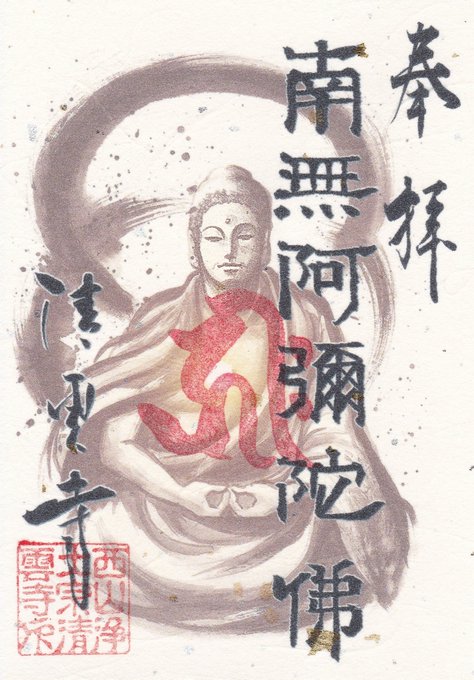 奉拝
南無阿彌陀佛
清雲寺
西山浄
土宗清
雲寺印